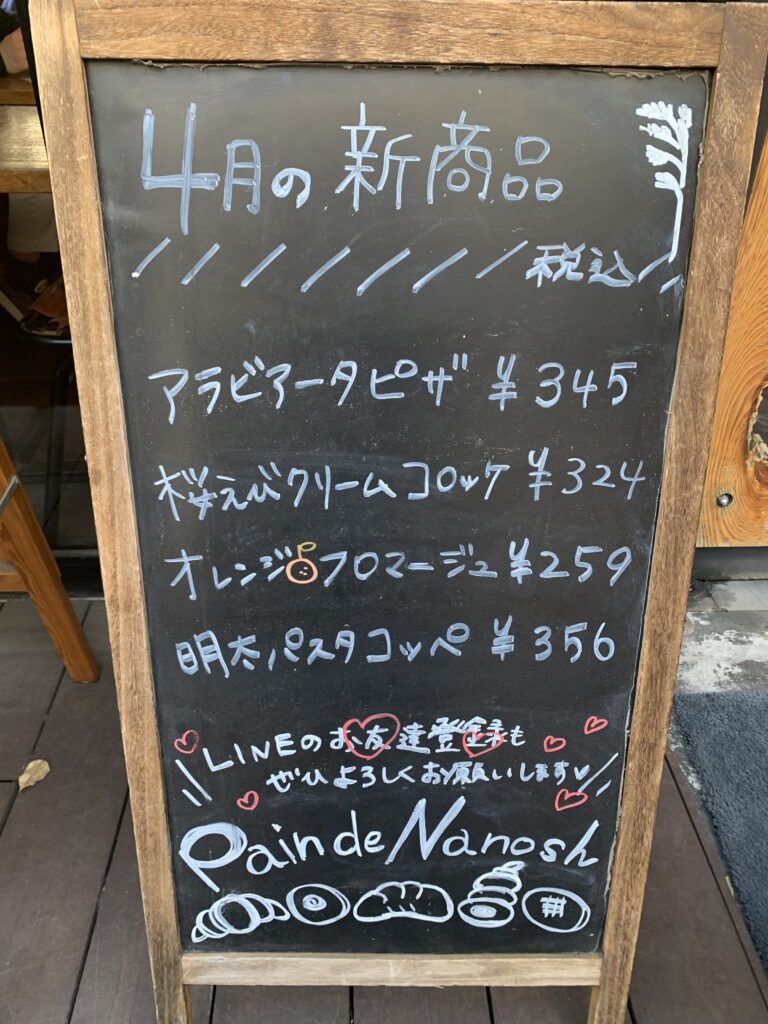 4月の新商品
税込
アラビアータピザ ¥345
桜えびクリームコロッケ ¥324
オレンジフロマージュ ¥259
明太パスタコッペ ¥356
LINEのお友達登録も
ぜひよろしくお願いします♡
Pain de Nanosh